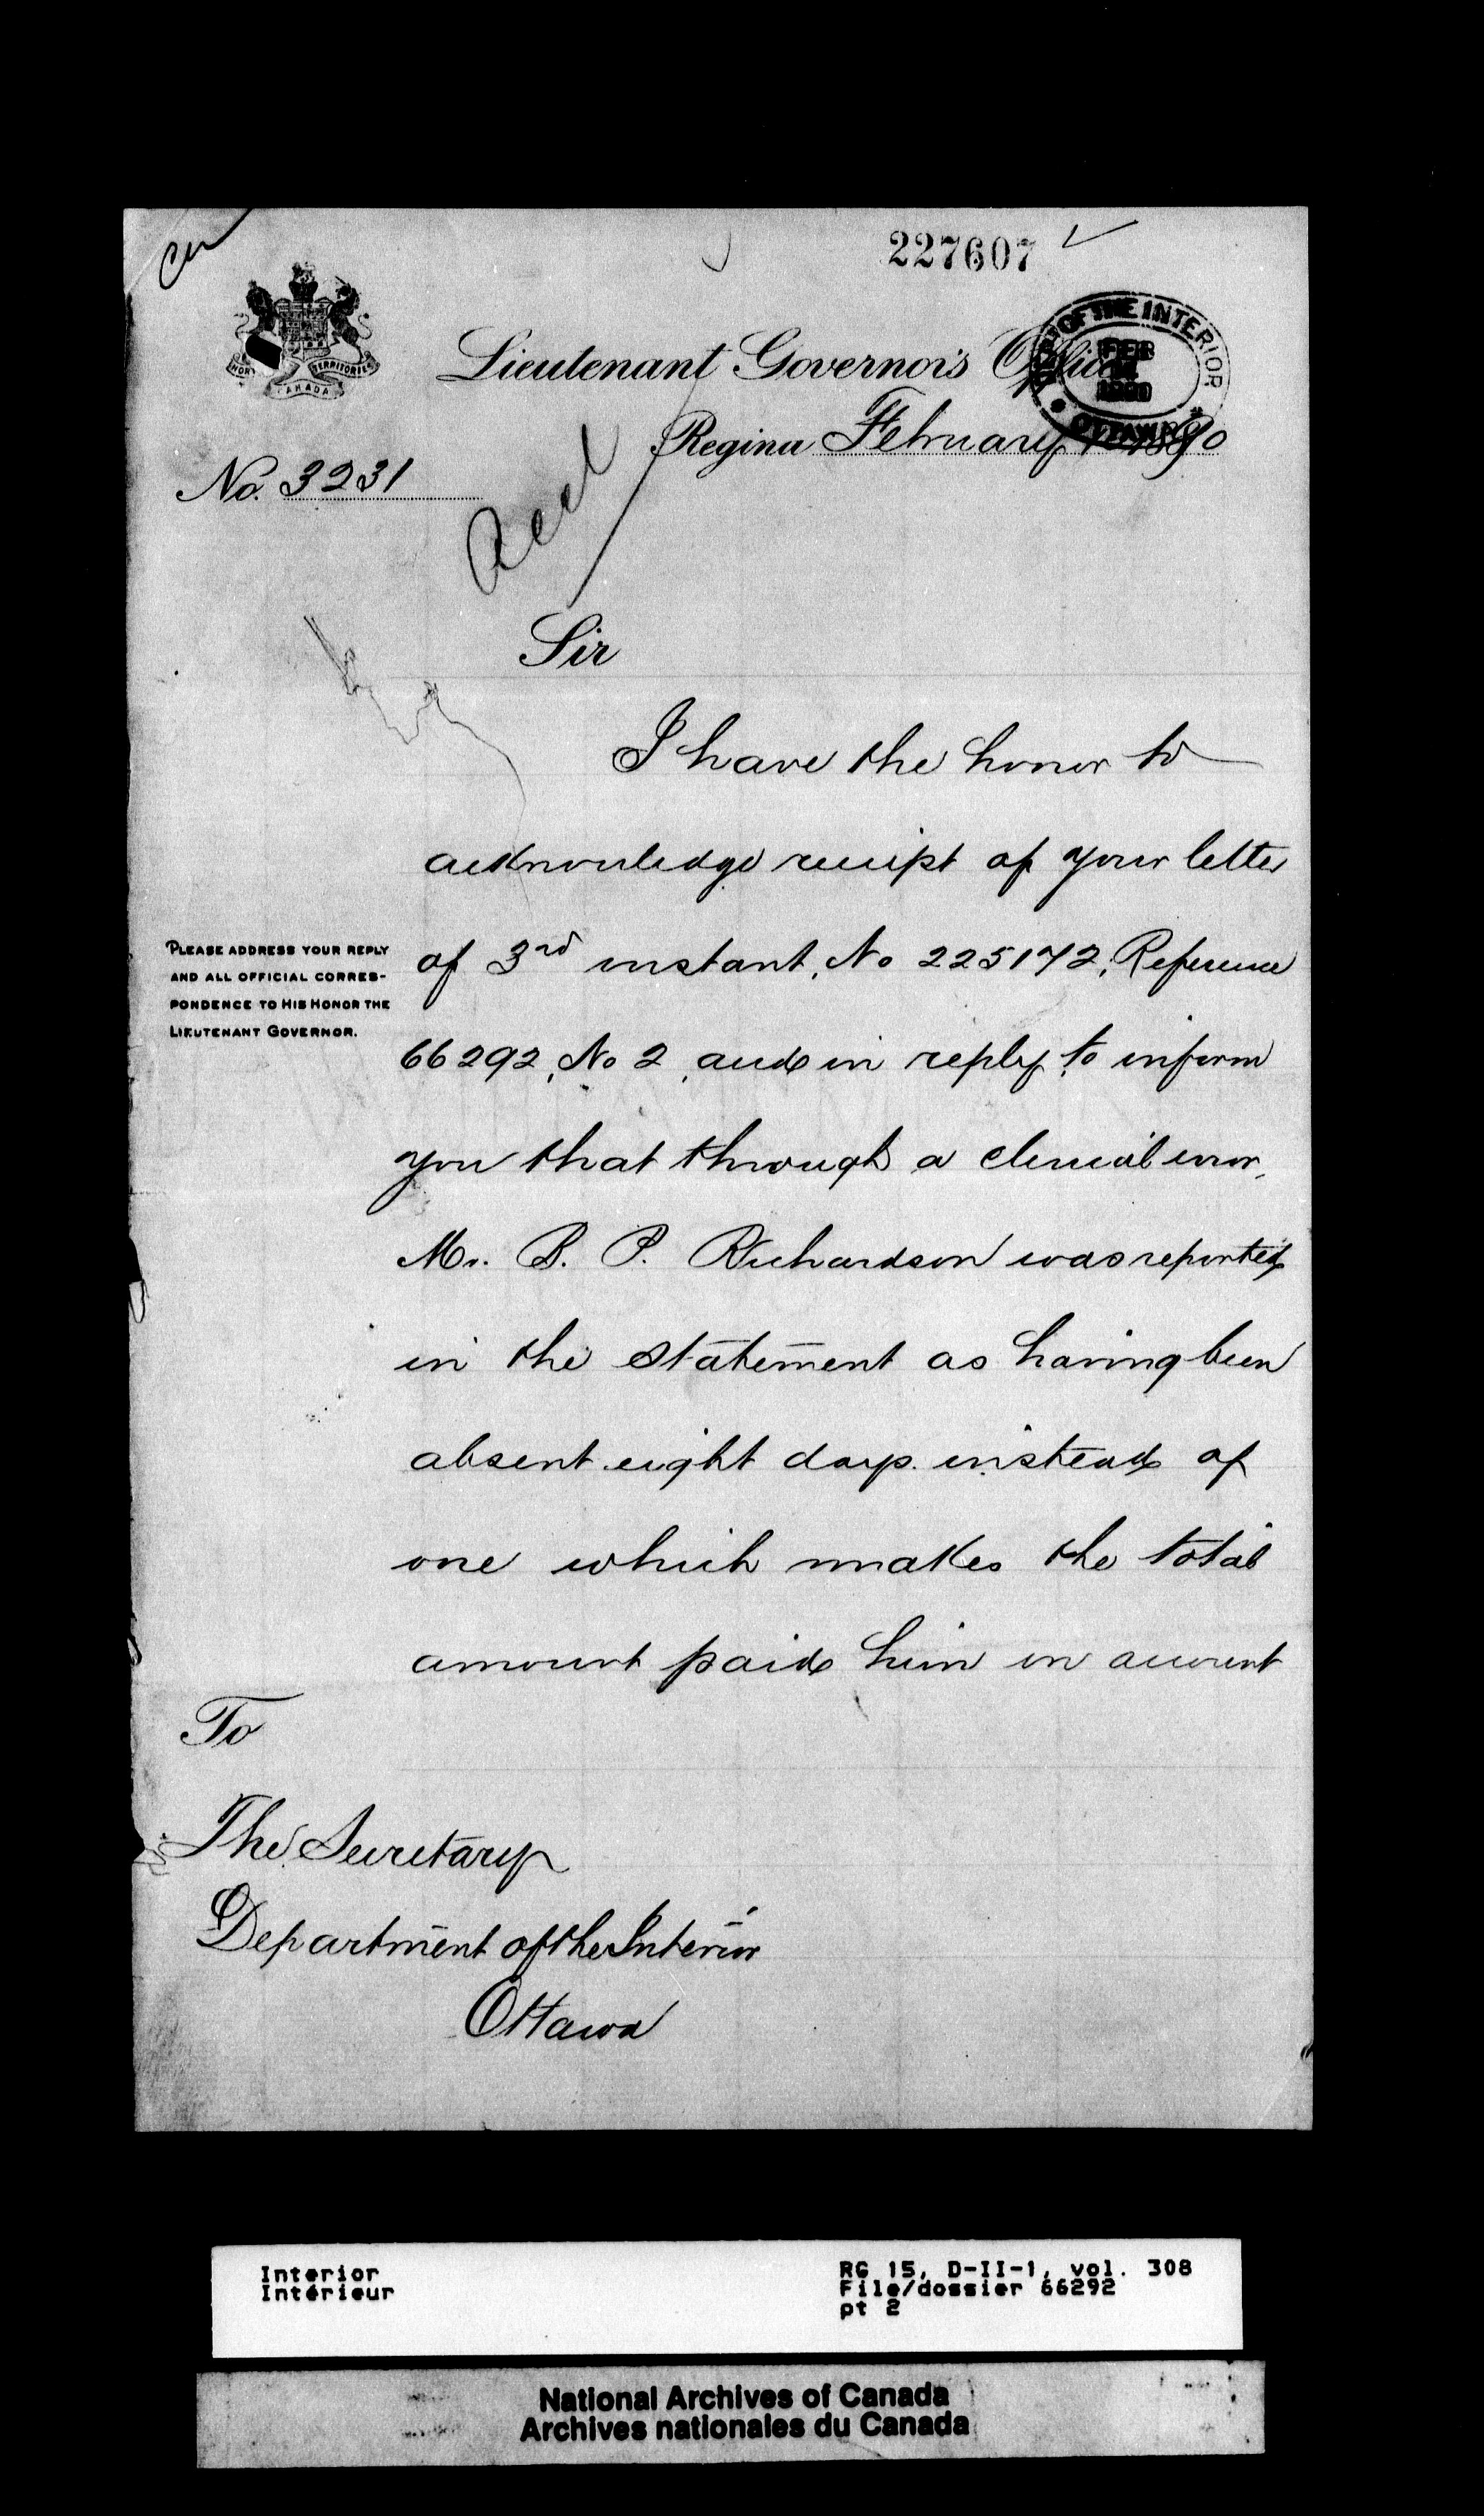 227607
Lieutenant Governor's Office
DEPT OF THE INTERIOR
FEB
1890
OTTAWA
NORTH TERRITORIES
CANADA
Regina February 1890
No. 3231
Sir
I have the honor to
acknowledge receipt of your letter
of 3rd instant, No 225172, Reference
PLEASE ADDRESS YOUR REPLY
AND ALL OFFICIAL CORRES-
PONDENCE TO HIS HONOR THE
LIEUTENANT GOVERNOR.
66292, No 2, and in reply to inform
you that through a clerical error,
Mr. B. P. Richardson was reported
in the statement as having been
absent eight days instead of
one which makes the total
amount paid him on account
To
The Secretary
Department of the Interior
Ottawa
Interior
Intérieur
RG 15, D-II-1, vol. 308
File/dossier 66292
pt 2
National Archives of Canada
Archives nationales du Canada